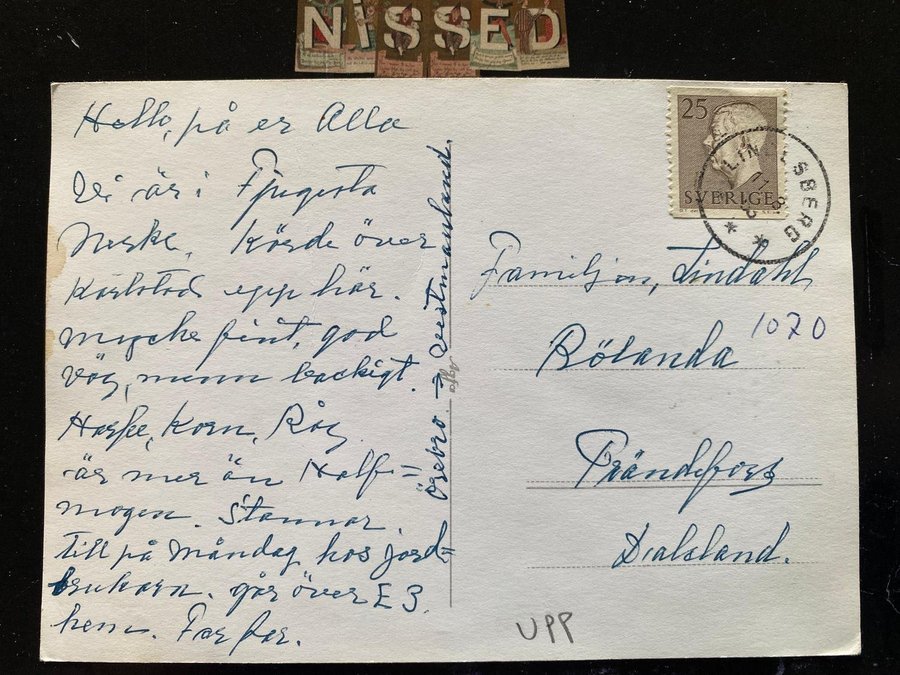 NISSED
Hallo, på er Alla
Vi är i Fjugesta
Nerke, Körde över
Karlstad upp här.
mycke fint, god
väg, menn backigt.
Havre, Korn, Råg
är mer än Half=
mogen. Stannar
till på Måndag hos jord=
brukarn. går över E 3.
hem. Farfar.
Örebro → Västmanland.
25
SVERIGE
LIN LSBERG
Familjen, Lindahl
1070
Rölanda
Brändefors
Dalsland.
UPP